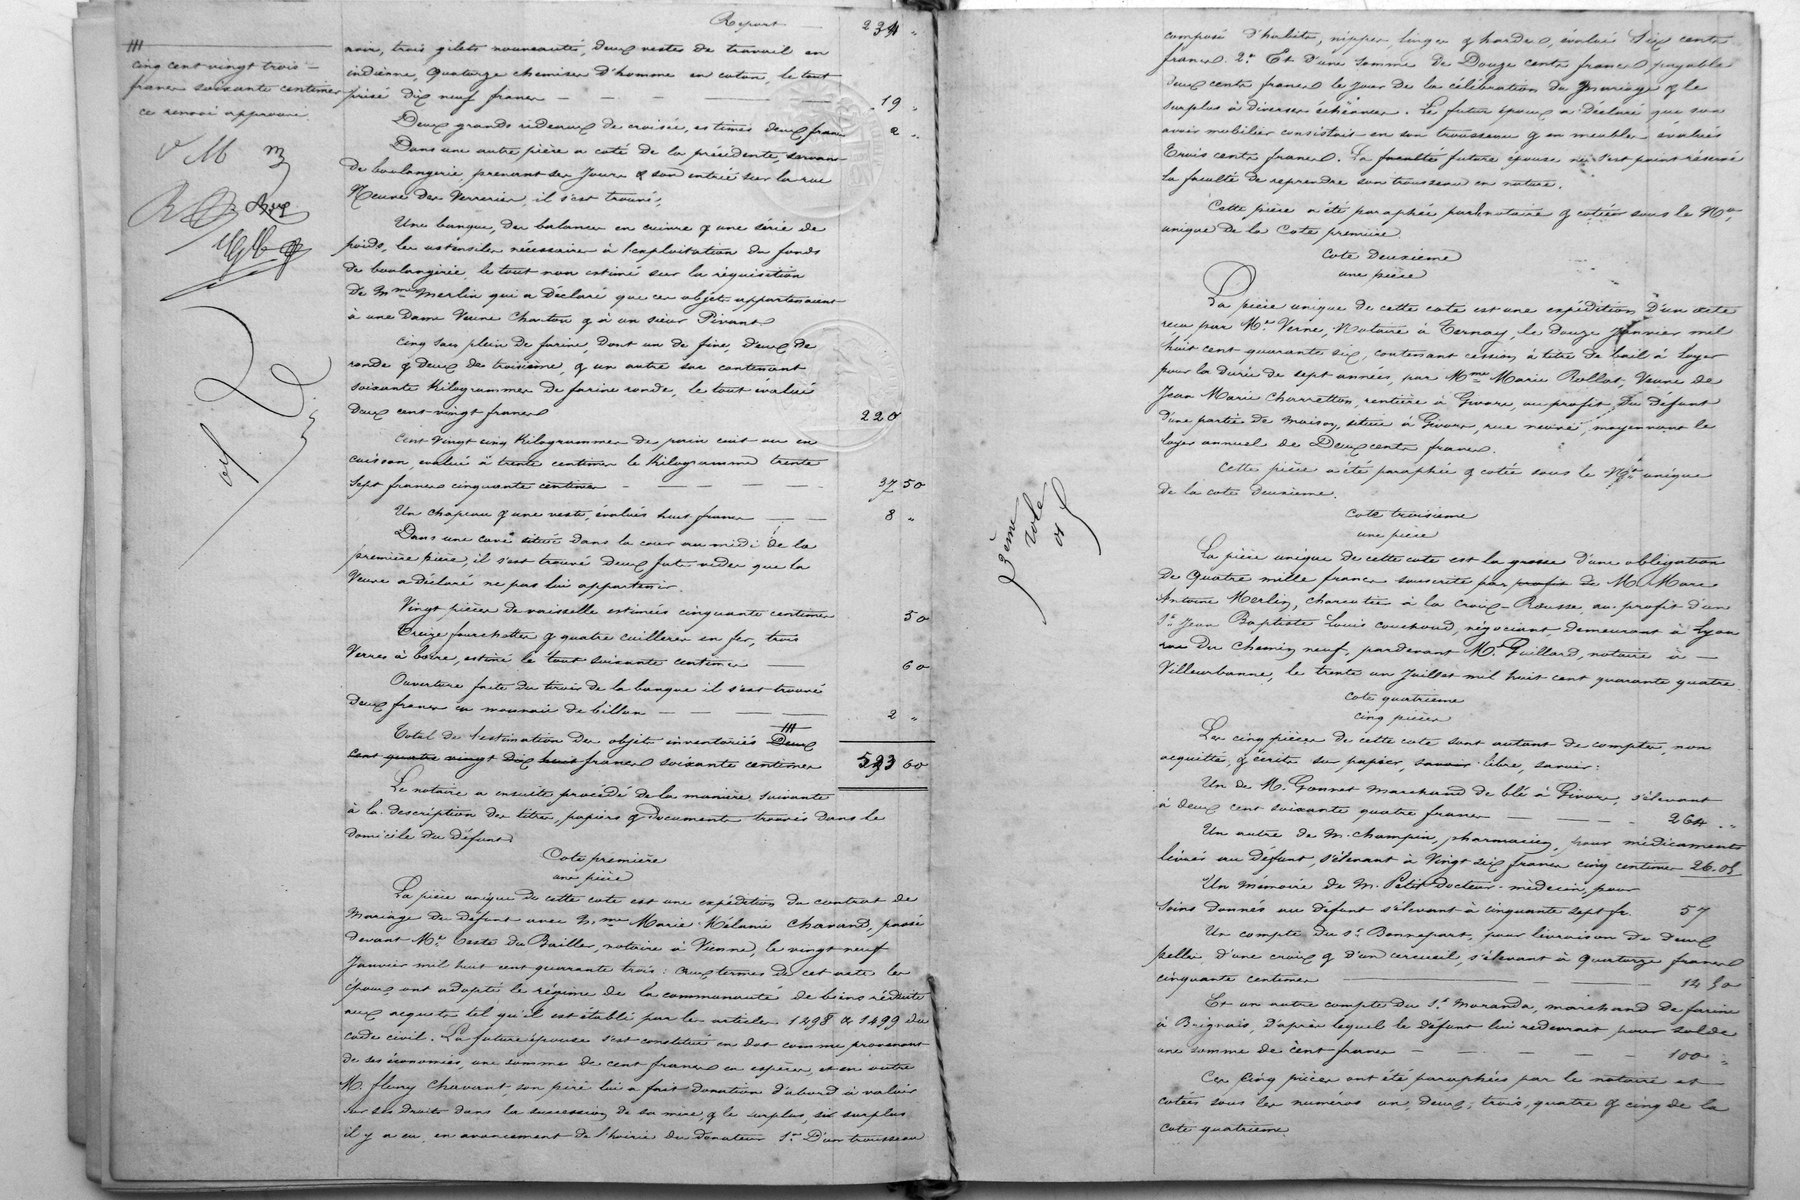 Report — 234 "
noir, trois gilets nouveautés, deux vestes de travail en
indienne, quatorze chemises d'homme en coton, le tout
prisé dix neuf francs — 19 "
Deux grands rideaux de croisée, estimés deux francs 2 "
Dans une autre pièce a coté de la précédente, servant
de boulangerie, prenant ses jours & son entrée sur la rue
Neuve des Verreries, il s'est trouvé,
Une banque, des balances en cuivre & une série de
poids, les ustensiles nécessaires à l'exploitation du fonds
de boulangerie, le tout non estimé sur la réquisition
de Mme Merlin qui a déclaré que ces objets appartenaient
à une Dame Veuve Charton & à un sieur Pivant
Cinq sacs plein de farine, dont un de fine, deux de
ronde & deux de troisième, & un autre sac contenant
soixante kilogrammes de farine ronde, le tout évalué
deux cent vingt francs 220
Cent vingt cinq kilogrammes de pain cuit ou en
cuisson, évalué à trente centimes le kilogramme trente
sept francs cinquante centimes — 37 50
Un chapeau & une veste, évalués huit francs — 8 "
Dans une cave située dans la cour au midi de la
première pièce, il s'est trouvé deux futs vides que la
Veuve a déclaré ne pas lui appartenir.
Vingt pièces de vaisselle estimées cinquante centimes 50
Treize fourchettes & quatre cuillères en fer, trois
Verres à boire, estimé le tout soixante centimes — 60
Ouverture faite du tiroir de la banque il s'est trouvé
deux francs en monnaie de billon — 2 "
Total de l'estimation des objets inventoriés Deux
cent quatre vingt dix huit francs soixante centimes 523 60
Le notaire a ensuite procédé de la manière suivante
à la description des titres, papiers & documents trouvés dans le
domicile du défunt
Cote première
une pièce
La pièce unique de cette cote est une expédition du contrat de
Mariage du défunt avec Mme Marie Mélanie Chavand, passé
devant Me Teste du Bailler, notaire à Vienne, le vingt neuf
Janvier mil huit cent quarante trois : aux termes de cet acte les
époux, ont adopté le régime de la communauté de biens réduite
aux acquets tel qu'il est établi par les articles 1498 & 1499 du
code civil. La future épouse s'est constitué en dot comme provenant
de ses économies, une somme de cent francs en espèces, et en outre
M. fleury Chavant, son père lui a fait donation d'abord à valoir
sur ses droits dans la succession de sa mère, & le surplus, si surplus
il y a eu, en avancement de l'hoirie du donateur 1° D'un trousseau
cinq cent vingt trois
francs soixante centimes
ce renvoi approuvé.
V M
composé d'habits, nippes, linges & hardes, évalué six cents
francs. 2° Et d'une somme de Douze cents francs payable
deux cents francs le jour de la célébration du mariage & le
surplus à diverses échéances. Le futur époux a déclaré que son
avoir mobilier consistait en son trousseau & en meubles évalués
trois cents francs. La faculté future épouse ne s'est point réservé
la faculté de reprendre son trousseau en nature.
Cette pièce a été paraphée par le notaire & cotée sous le No
unique de la Cote première
Cote Deuxième
une pièce
La pièce unique de cette cote est une expédition d'un acte
reçu par Me Verne, Notaire à Ternay, le douze Janvier mil
huit cent quarante six, contenant cession à titre de bail à loyer
pour la durée de sept années, par Mme Marie Rollat, Veuve de
Jean Marie Charretton, rentière à Givors, au profit du défunt
d'une partie de maison, située à Givors, rue neuve, moyennant le
loyer annuel de Deux cents francs.
Cette pièce a été paraphée & cotée sous le No unique
de la cote deuxième.
Cote troisième
une pièce
La pièce unique de cette cote est la grosse d'une obligation
de quatre mille francs souscrite par profit de M. Marc
Antoine Merlin, charcutier à la Croix-Rousse, au profit d'un
Sr Jean Baptiste Louis Couchoud, négociant, demeurant à Lyon
rue du Chemin neuf, pardevant Me Guillard, notaire à —
Villeurbanne, le trente un Juillet mil huit cent quarante quatre.
Cote quatrième
cinq pièces
Les cinq pièces de cette cote sont autant de comptes, non
acquittés, & écrits sur papier, savoir libre, savoir :
Un de M. Gonnet marchand de blé à Givors, s'élevant
à deux cent soixante quatre francs — 264 "
Un autre de M. Champin, pharmacien, pour médicaments
livrés au défunt, s'élevant à Vingt six francs cinq centimes 26.05
Un mémoire de M. Petit docteur-médecin, pour
soins donnés au défunt s'élevant à cinquante sept fr. 57
Un compte du Sr Bonnepart, pour livraison de deux
pelles, d'une croix & d'un cercueil, s'élevant à quatorze francs
cinquante centimes — 14 50
Et un autre compte du Sr Moranda, marchand de farine
à Brignais, d'après lequel le défunt lui redevrait pour solde
une somme de cent francs — 100 "
Ces cinq pièces ont été paraphées par le notaire et
cotées sous les numéros un, deux, trois, quatre & cinq de la
cote quatrième.
3ème
role